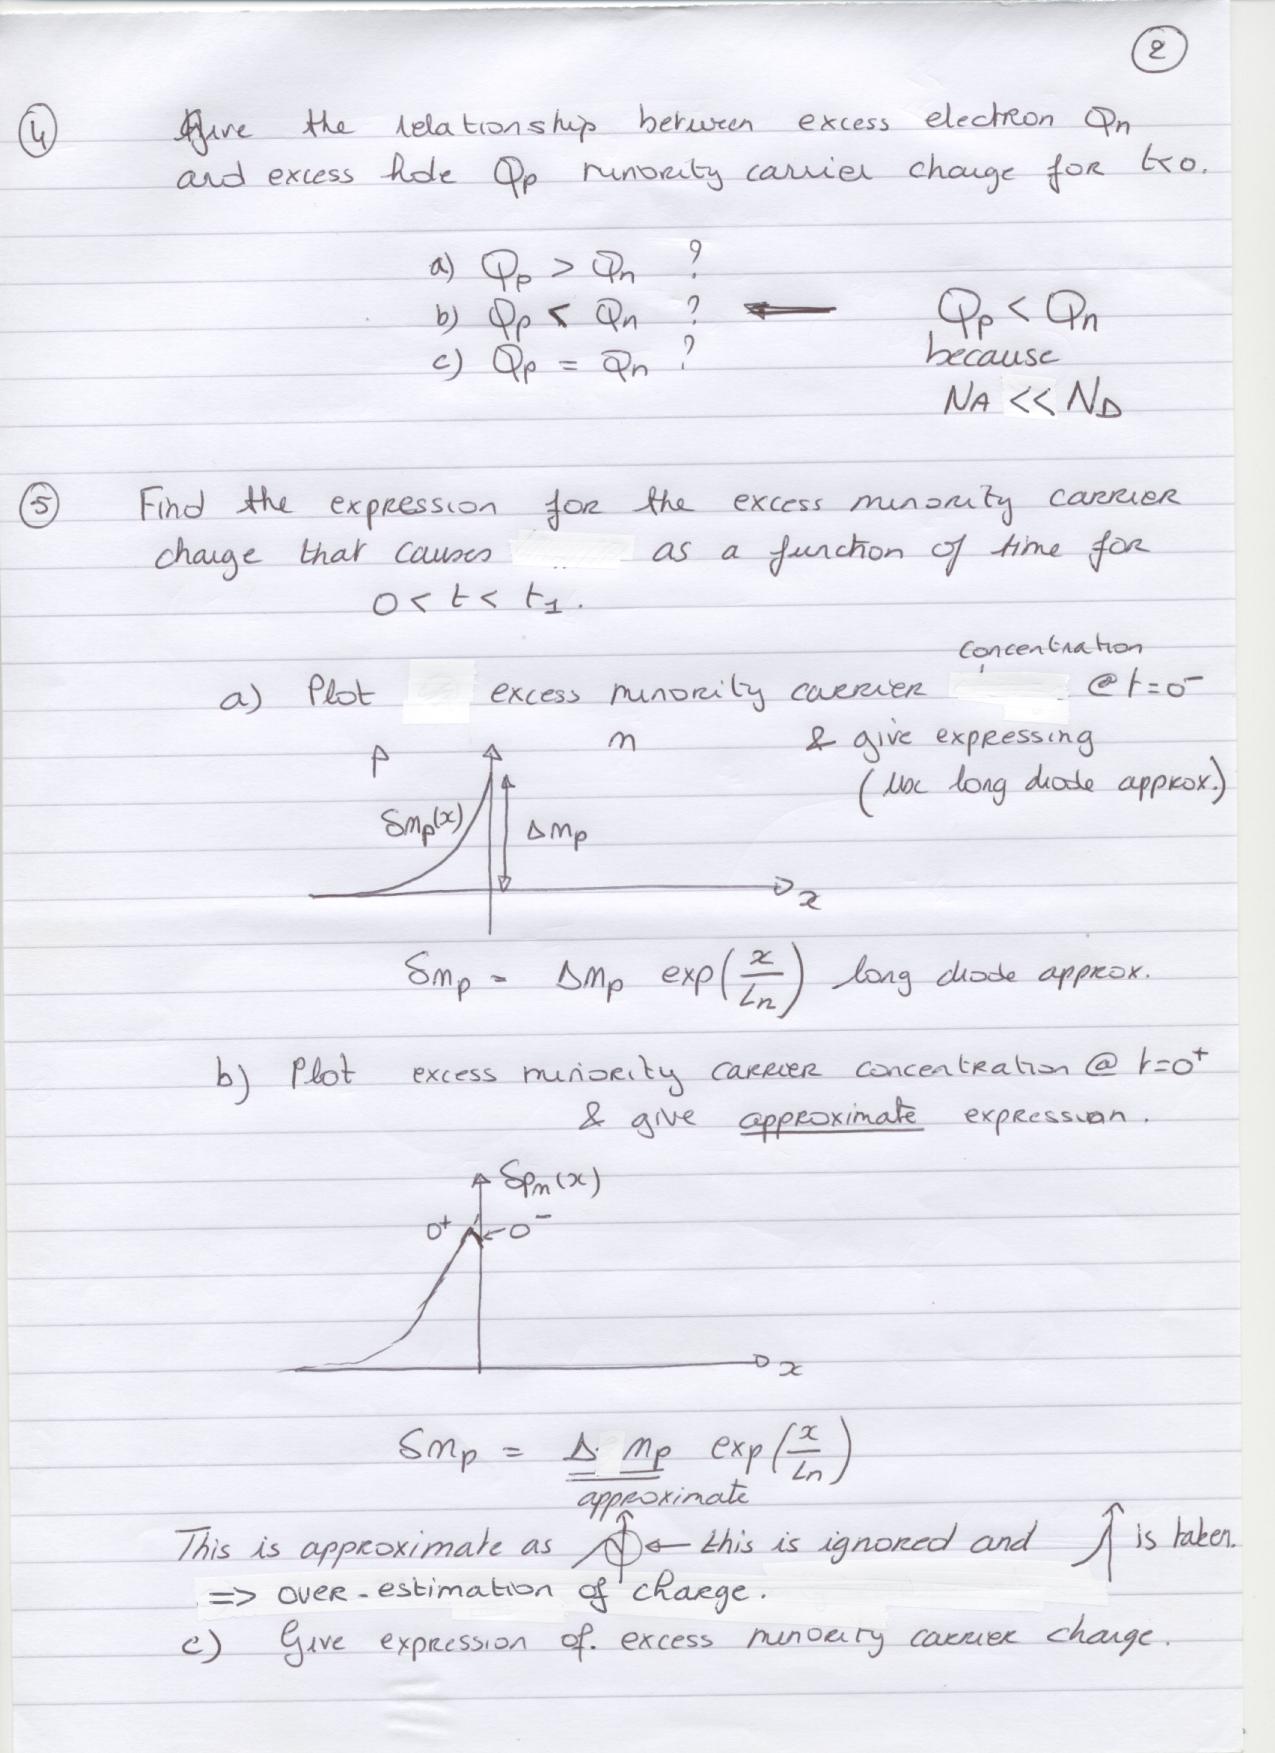 2
4 Give the relationship between excess electron Qn
and excess hole Qp minority carrier charge for t<0.
a) Qp > Qn ?
b) Qp < Qn ? ← Qp < Qn
c) Qp = Qn ? because
NA << ND
5 Find the expression for the excess minority carrier
charge that causes as a function of time for
0 < t < t1.
concentration
a) Plot excess minority carrier @ t=0-
p n & give expressing
(use long diode approx.)
δnp(x) Δnp
x
δnp = Δnp exp(x/Ln) long diode approx.
b) Plot excess minority carrier concentration @ t=0+
& give approximate expression.
δpn(x)
0+ ←0-
x
δnp = Δ np exp(x/Ln)
approximate
This is approximate as ← this is ignored and is taken.
=> over-estimation of charge.
c) Give expression of. excess minority carrier charge.